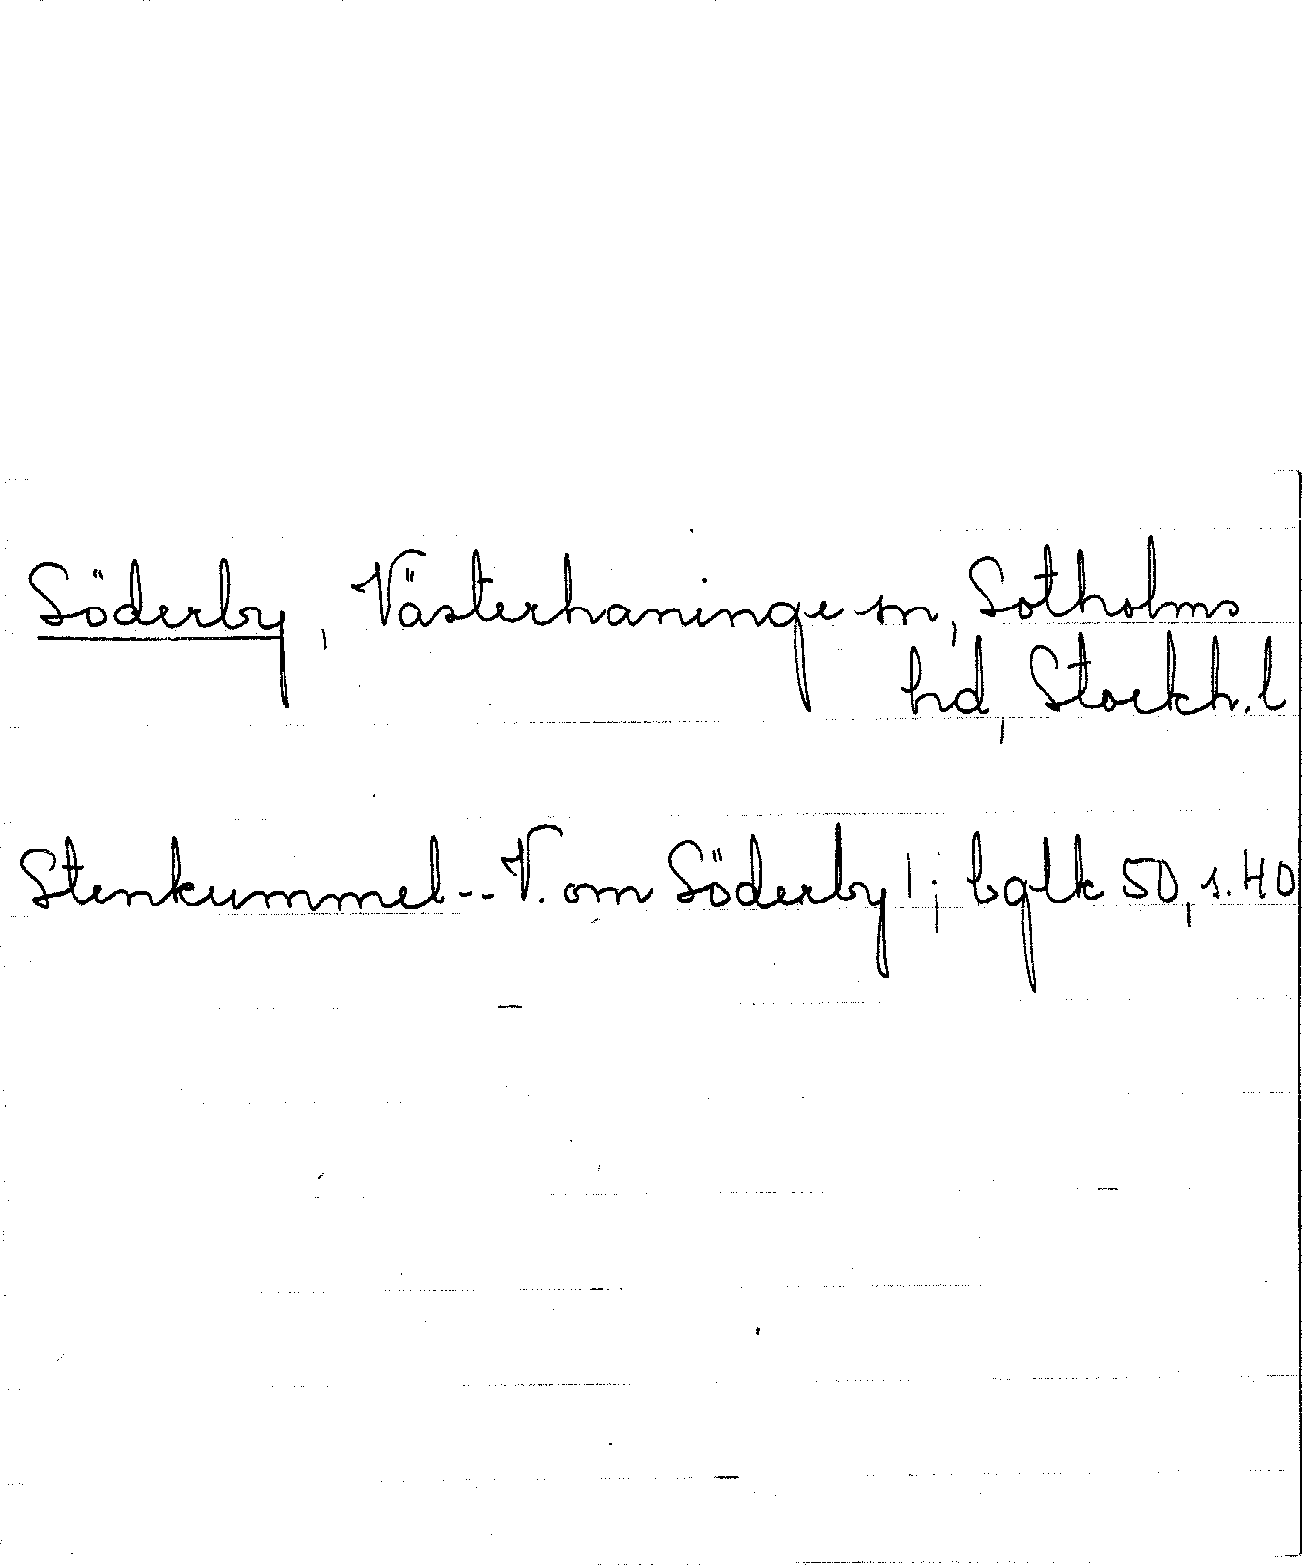 Söderby, Västerhaninge sn, Sotholms
hd, Stockh.l
Stenkummel -- V. om Söderby 1; bglk 50, s. 40